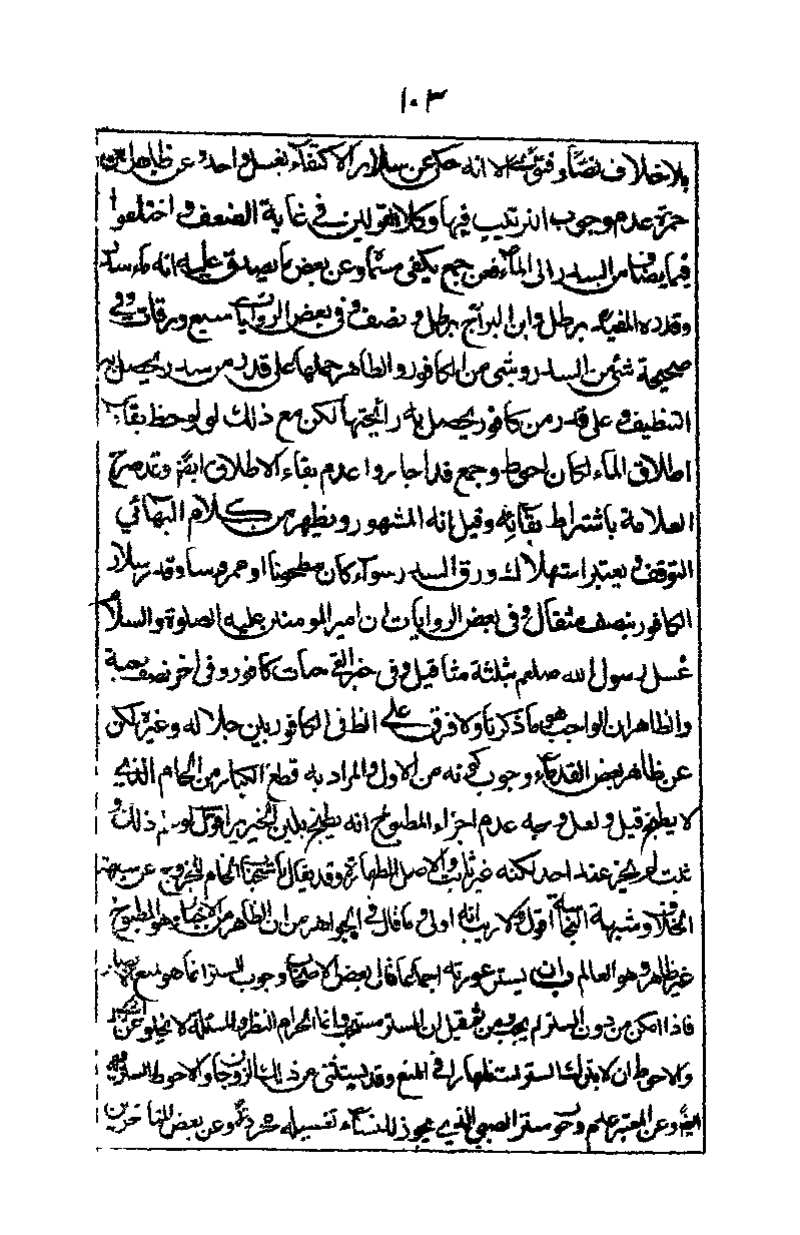 ١٠٣
بلا خلاف نصا وفتوى الا انه حكى عن سلار الاكتفاء بغسل واحد وعن ظاهر ابن
حمزة عدم وجوب الترتيب فيها وكلا القولين في غاية الضعف واختلفوا
فيما يضاف من السدر الى الماء فعن جمع يكفى مسماه وعن بعض ما يصدق عليه انه ماء سدر
وقدره المفيد برطل وابن البراج برطل ونصف وفي بعض الروايات سبع ورقات وفي
صحيحة شئ من السدر وشئ من الكافور والظاهر حملها على قدر من سدر يحصل به
التنظيف وعلى قدر من كافور يحصل به رائحتها لكن مع ذلك لو لوحظ بقاء
اطلاق الماء لكان احوط وجمع قد اجازوا عدم بقاء الاطلاق ايضا وقد صرح
العلامة باشتراط بقائه وقيل انه المشهور ويظهر من كلام البهائي
التوقف ويعتبر استهلاك ورق السدر سواء كان مطحونا او ممروسا وقدر سلار
الكافور بنصف مثقال وفي بعض الروايات ان امير المومنين عليه الصلوة والسلام
غسل رسول الله صلعم بثلثة مثاقيل وفي خبر القى حبات كافور وفي اخر نصف حبة
والظاهر ان الواجب هو ما ذكرنا ولا فرق على الظ في الكافور بين جلاله وغيره لكن
عن ظاهر بعض القدماء وجوب كونه من الاول والمراد به قطع الكبار من الخام الذي
لا يطبخ قيل ولعل وجه عدم اجزاء المطبوخ انه يطبخ بلبن الخنزير اقول لو سلم ذلك و
ثبت لم يجز عند احد لكنه غير ثابت والاصل الطهارة وقد يقال باستحباب الخام للخروج عن شبهة
الخلاف وشبهة النجاسة اقول ولا ريب انه اولى وما قال في الجواهر من ان الظاهر من الاخبار هو المطبوخ
غير ظاهر وهو العالم وان يستر عورته اجماعا قال بعض الاصحاب وجوب الستر انما هو لمنع الابصار
فاذا امكن من دون الستر لم يجب ومن ثم قيل ان الستر مستحب وانما الحرام النظر والمسئلة لا يخلو عن
والاحوط ان لا يترك الستر استظهارا في المنع وقد يستثنى عن ذلك الزوجان والاحوط الستر فيه
ايضا وعن المعتبر عدم وجوب ستر الصبي الذي يجوز للنساء تغسيله مجردا وعن بعض المتاخرين